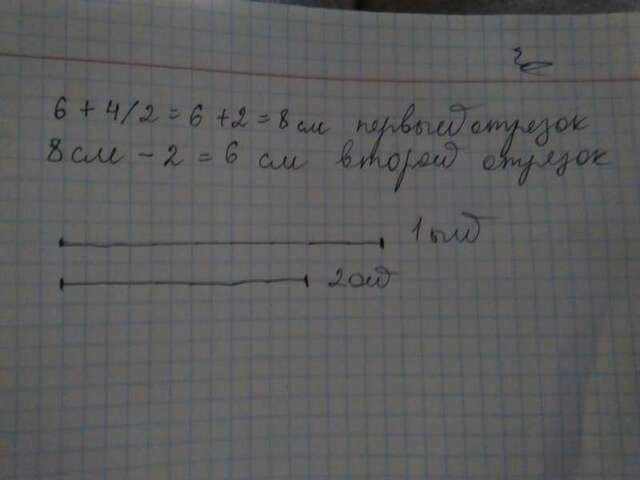 6 + 4/2 = 6 + 2 = 8 см первый отрезок
8 см - 2 = 6 см второй отрезок
1 ый
2 ой